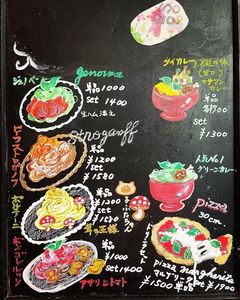 ジェノベーゼ
genovese
単品
¥1000
set
1400
生ハム添え
stroganoff
ビーフストロガノフ
単品
¥1200
set
¥1580
ポルチーニ
茸の王様
単品
¥1200
set
¥1580
ボンゴレロッソ
単品
¥1000
set 1400
アサリとトマト
タイカレー
set
¥1300
人気No1
グリーンカレー
pizza
30cm
pizza margherita
マルゲリータ
単品
¥1500
set
¥1900